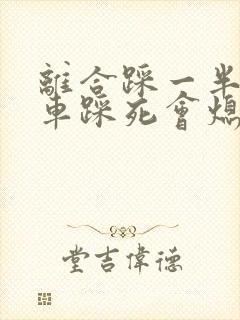 離合踩一半
車踩死會熄
堂吉偉德